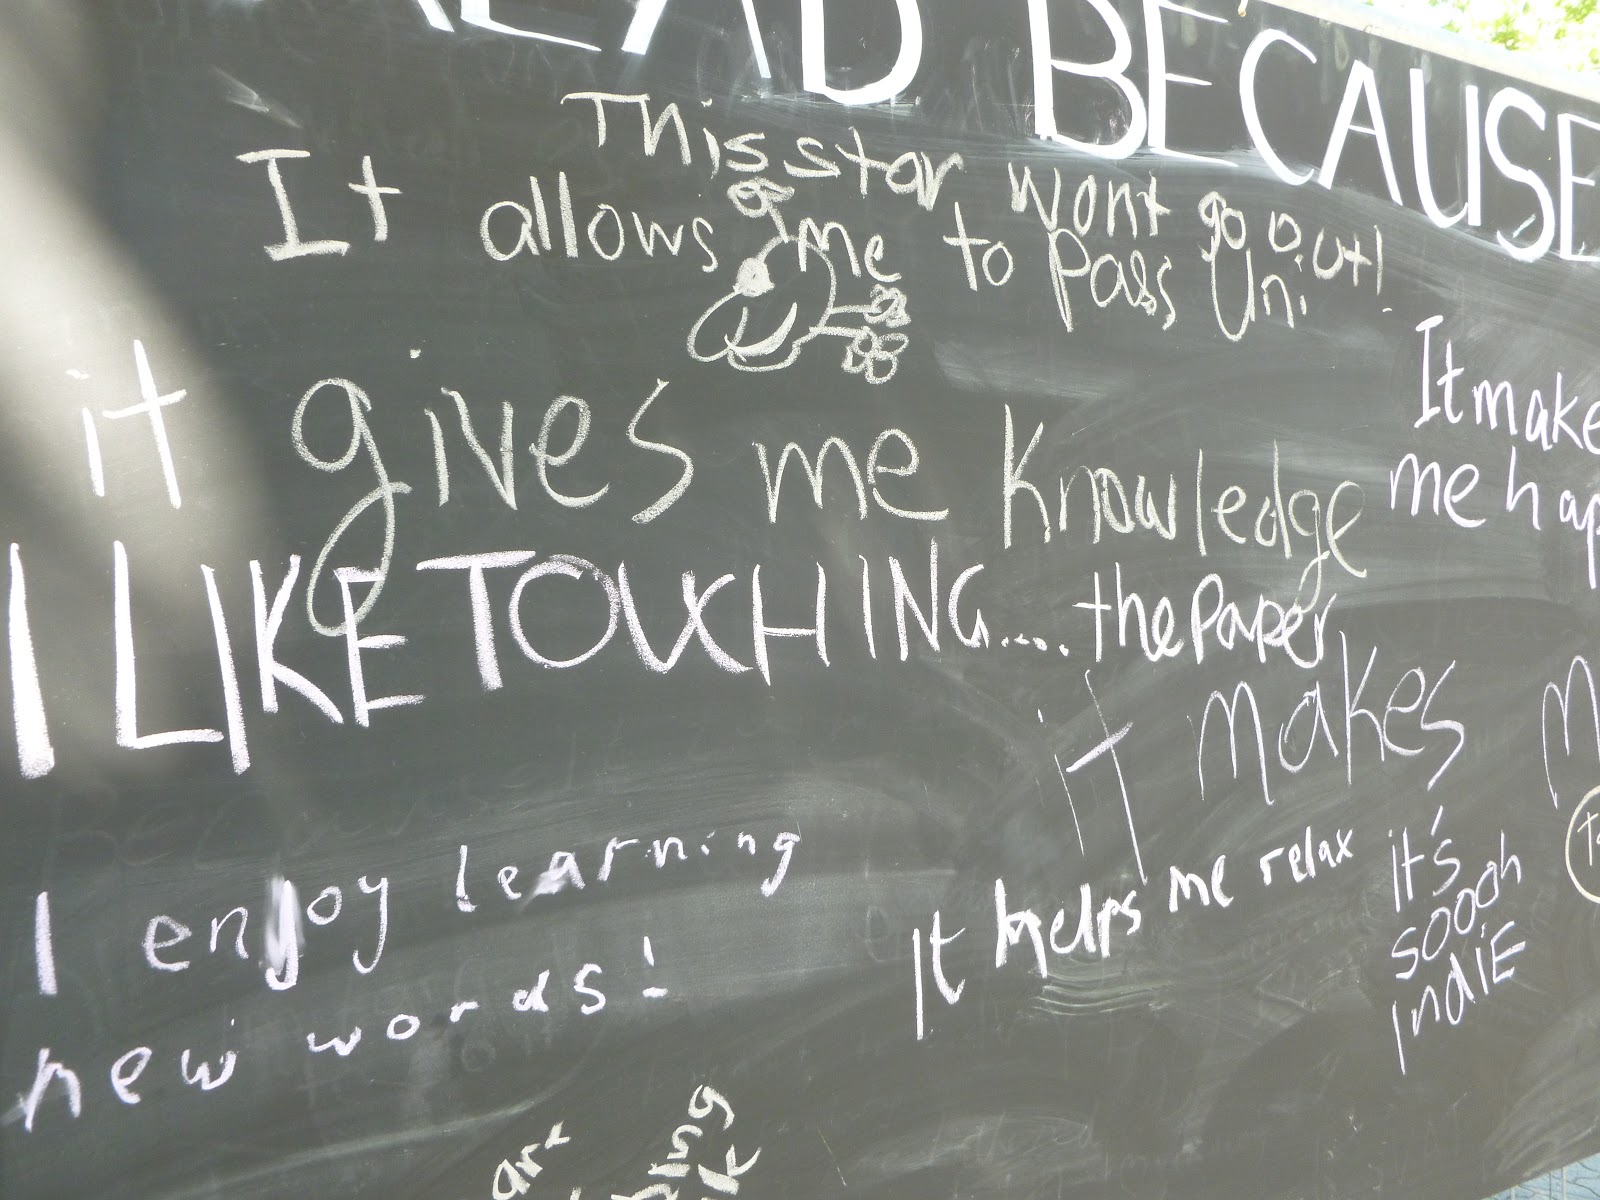 READ BECAUSE
This star wont go out!
It allows me to pass Uni
it gives me knowledge
It make
me hap
I LIKE TOUCHING.... the paper
it makes
I enjoy learning
new words!
It helps me relax
it's
soooh
INdIE